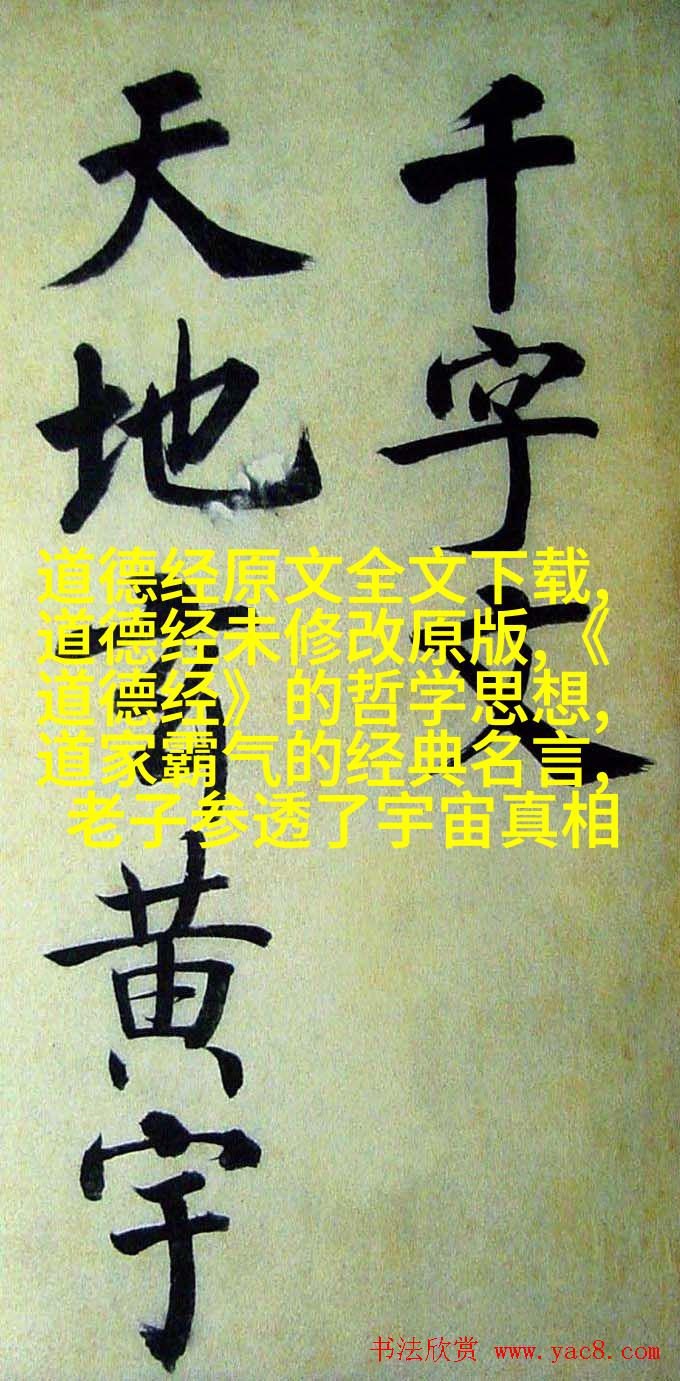 千字文
天地黄宇
道德经原文全文下载,
道德经未修改原版,《
道德经》的哲学思想,
道家霸气的经典名言,
老子参透了宇宙真相
书法欣赏 www.yac8.com